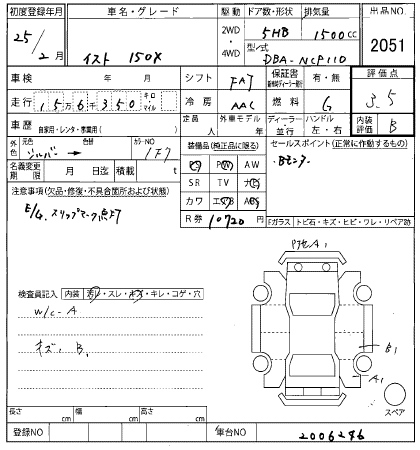 初度登録年月 車名・グレード 駆動 ドア数・形状 排気量 出品NO
25/2月 イスト 150X 2WD・4WD 5HB 1500cc 2051
型/式 DBA-NCP110
車検 年 月 シフト FAT 保証書 有・無 評価点
走行 15万6千350 キロ・マイル 冷房 AAC 燃料 G 3.5
車歴 自家用・レンタ・事業用( ) 定員 人 外車モデル 年 ディーラー・並行 ハンドル 左・右 内装評価 B
外色 元色 シルバー → 色替 カラーNO 1F7 装備品(純正品に限る) セールスポイント(正常に作動するもの)
PS PW AW ・Bモニター
名義変更期限 月 日迄 積載 t SR TV ナビ
注意事項(欠品・修復・不具合箇所および状態) カワ エアB ABS
E/G、スリップマーク点灯 R券 10720円 Fガラス トビ石・キズ・ヒビ・ワレ・リペア跡
A1
検査員記入 内装 汚レ・スレ・キズ・キレ・コゲ・穴
W/C-A
キズ、B1
B1
A1
スペア
長さ cm 幅 cm 高さ cm
登録NO 車台NO 2006246